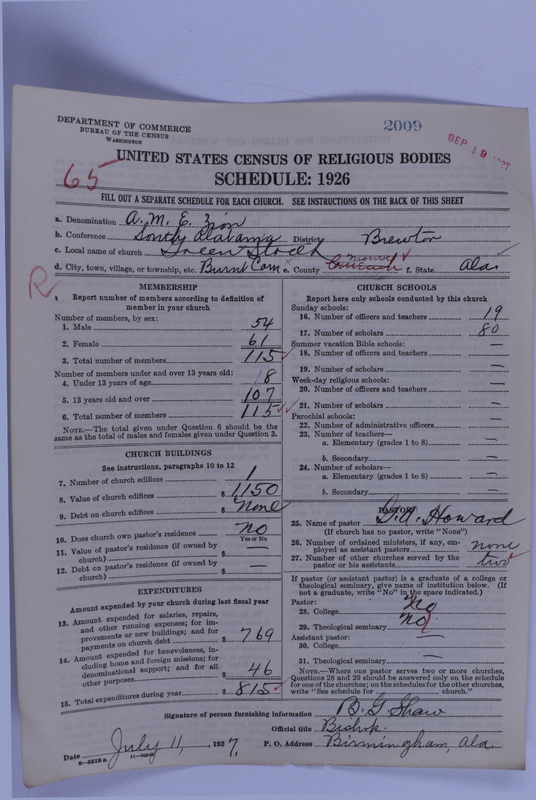 DEPARTMENT OF COMMERCE
BUREAU OF THE CENSUS
WASHINGTON
2009
SEP 19
UNITED STATES CENSUS OF RELIGIOUS BODIES
65
SCHEDULE: 1926
FILL OUT A SEPARATE SCHEDULE FOR EACH CHURCH. SEE INSTRUCTIONS ON THE BACK OF THIS SHEET
a. Denomination A. M. E. Zion
b. Conference South Alabama District Brewton
c. Local name of church Green
d. City, town, village, or township, etc. Burnt Corn e. County Monroe f. State Ala
R
MEMBERSHIP
Report number of members according to definition of
member in your church
Number of members, by sex:
1. Male 54
2. Female 61
3. Total number of members 115
Number of members under and over 13 years old:
4. Under 13 years of age 8
5. 13 years old and over 107
6. Total number of members 115
NOTE.—The total given under Question 6 should be the
same as the total of males and females given under Question 3.
CHURCH BUILDINGS
See instructions, paragraphs 10 to 12
7. Number of church edifices 1
8. Value of church edifices $ 1,150
9. Debt on church edifices $ None
10. Does church own pastor's residence No
Yes or No
11. Value of pastor's residence (if owned by
church) $ —
12. Debt on pastor's residence (if owned by
church) $ —
EXPENDITURES
Amount expended by your church during last fiscal year
13. Amount expended for salaries, repairs,
and other running expenses; for im-
provements or new buildings; and for
payments on church debt $ 769
14. Amount expended for benevolences, in-
cluding home and foreign missions; for
denominational support; and for all
other purposes $ 46
15. Total expenditures during year $ 815
CHURCH SCHOOLS
Report here only schools conducted by this church
Sunday schools:
16. Number of officers and teachers 19
17. Number of scholars 80
Summer vacation Bible schools:
18. Number of officers and teachers —
19. Number of scholars —
Week-day religious schools:
20. Number of officers and teachers —
21. Number of scholars —
Parochial schools:
22. Number of administrative officers —
23. Number of teachers—
a. Elementary (grades 1 to 8) —
b. Secondary —
24. Number of scholars—
a. Elementary (grades 1 to 8) —
b. Secondary —
PASTOR
25. Name of pastor Howard
(If church has no pastor, write "None")
26. Number of ordained ministers, if any, em-
ployed as assistant pastors none
27. Number of other churches served by the
pastor or his assistants two
If pastor (or assistant pastor) is a graduate of a college or
theological seminary, give name of institution below. (If
not a graduate, write "No" in the space indicated.)
Pastor:
28. College No
29. Theological seminary No
Assistant pastor:
30. College —
31. Theological seminary —
NOTE.—Where one pastor serves two or more churches,
Questions 28 and 29 should be answered only on the schedule
for one of the churches; on the schedules for the other churches,
write "See schedule for church."
Signature of person furnishing information B. G. Shaw
Official title Bishop
Date July 11, 1927. P. O. Address Birmingham, Ala